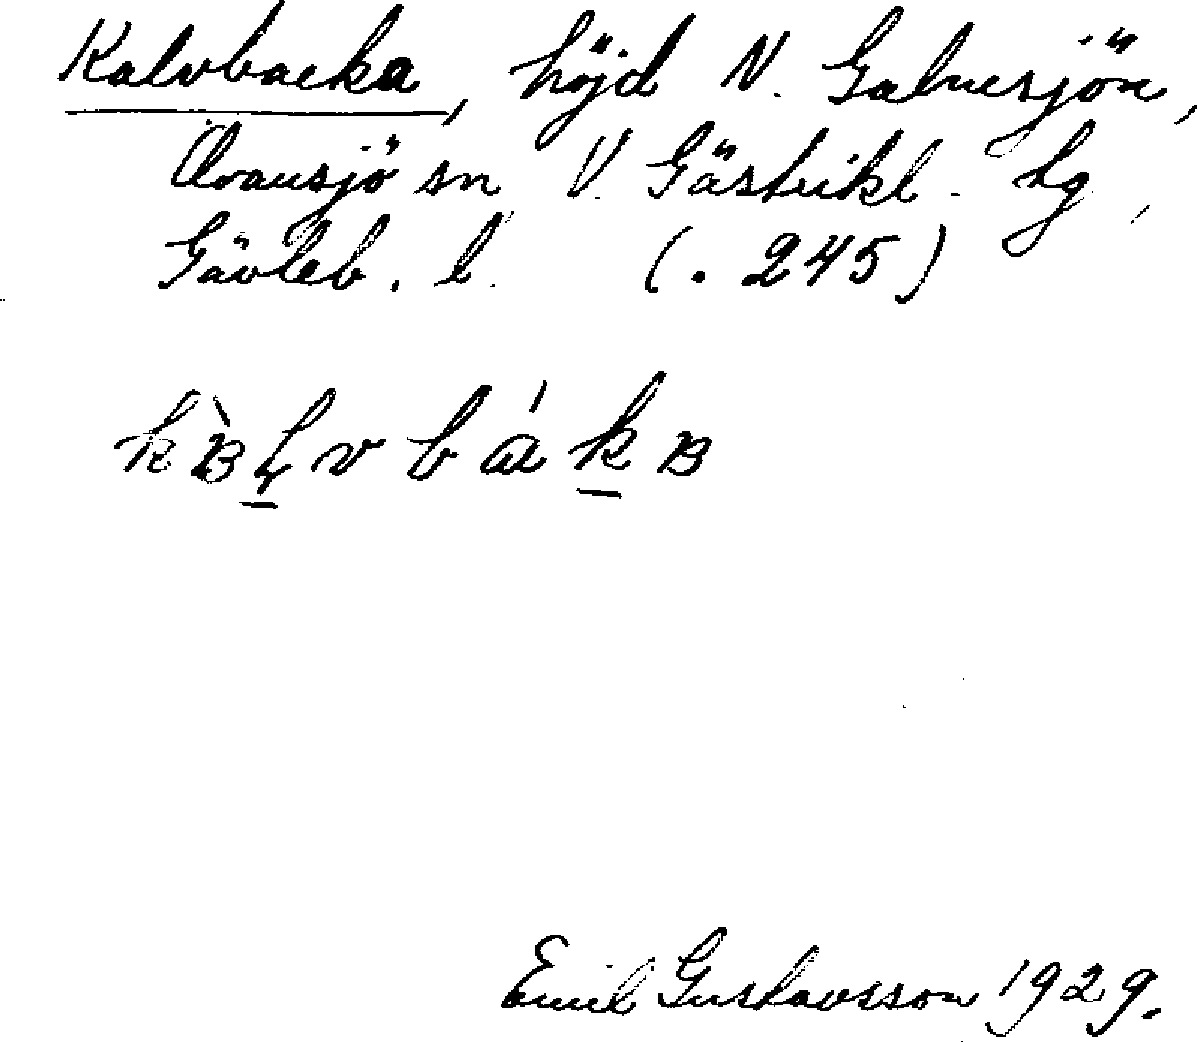 Kalvbacka, höjd N. Galmsjön,
Ovansjö sn V. Gästrikl. hg,
Gävleb. l. (. 245)
Emil Gustavsson 1929.